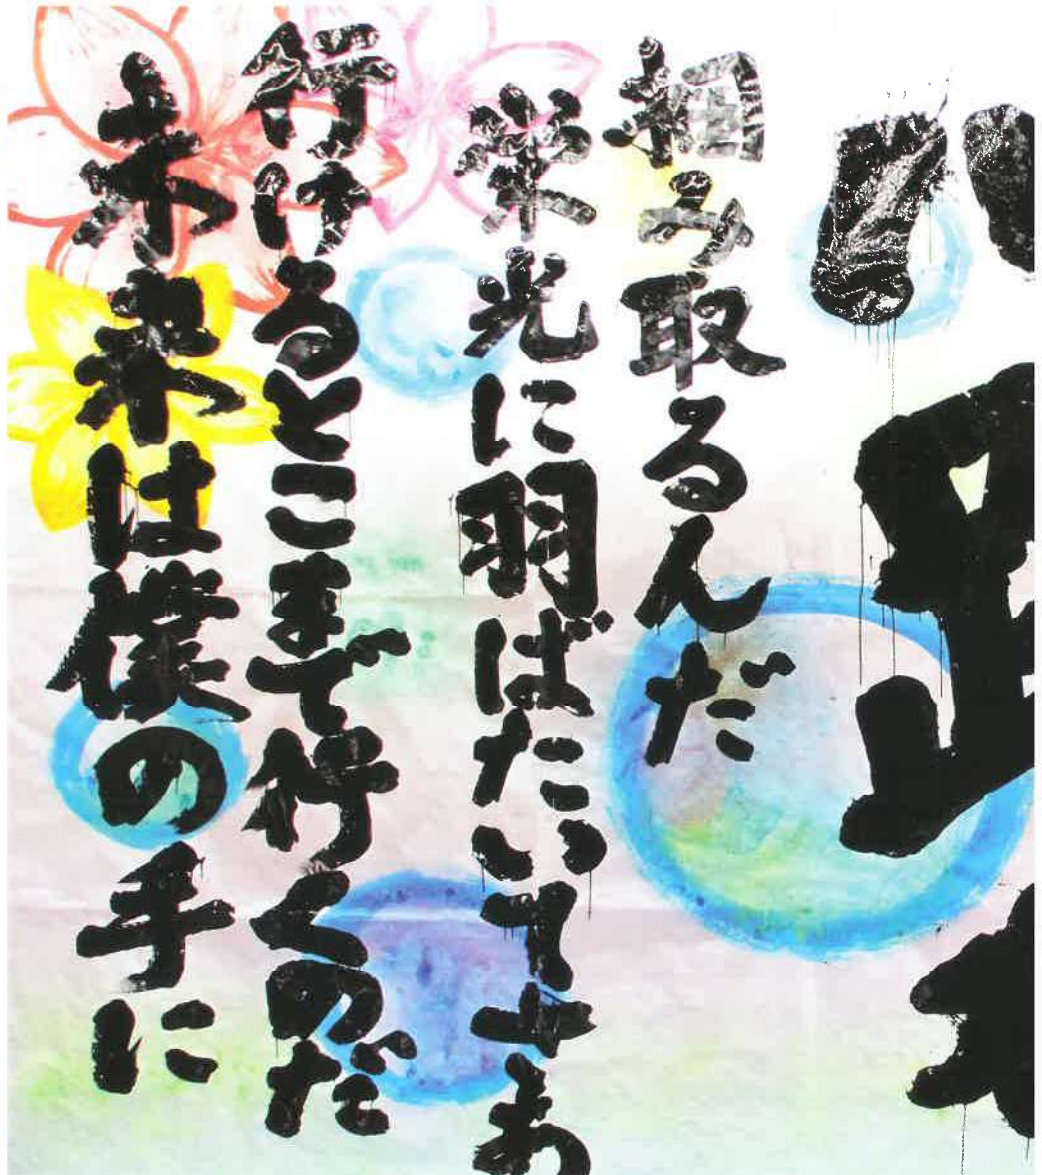 掴み取るんだ
栄光に羽ばたいて
行けるとこまで行くのだ
未来は僕の手に